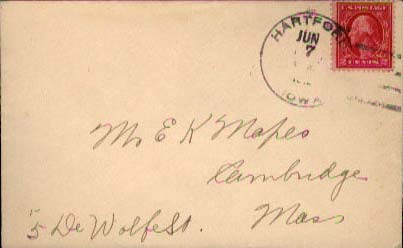 HARTFORD
JUN
7
IOWA
U.S. POSTAGE
2 CENTS 2
Mr E K Mapes
Cambridge
Mass
5 De Wolfe St.